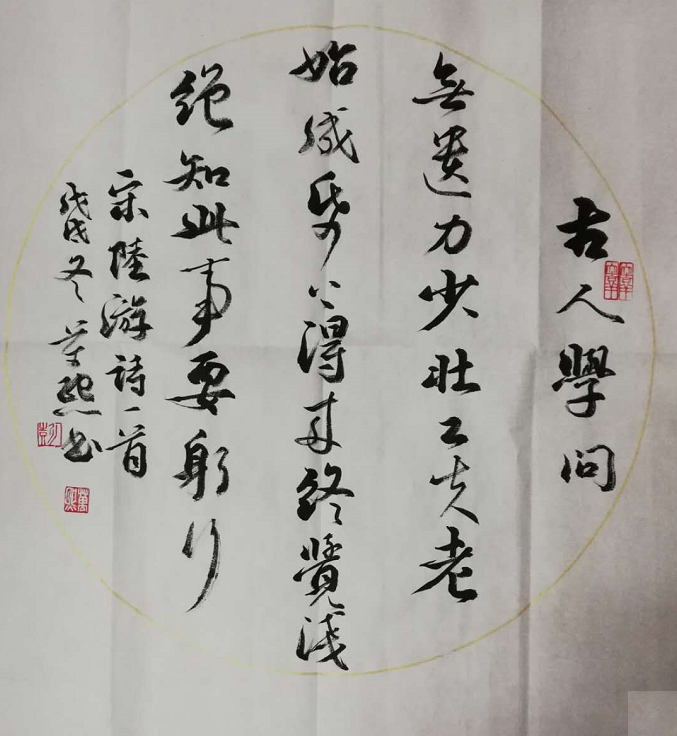 古人學問
無遺力少壯工夫老
始成帋上得来終覺淺
絕知此事要躬行
宋陸游詩一首
戊戌冬萬熙书